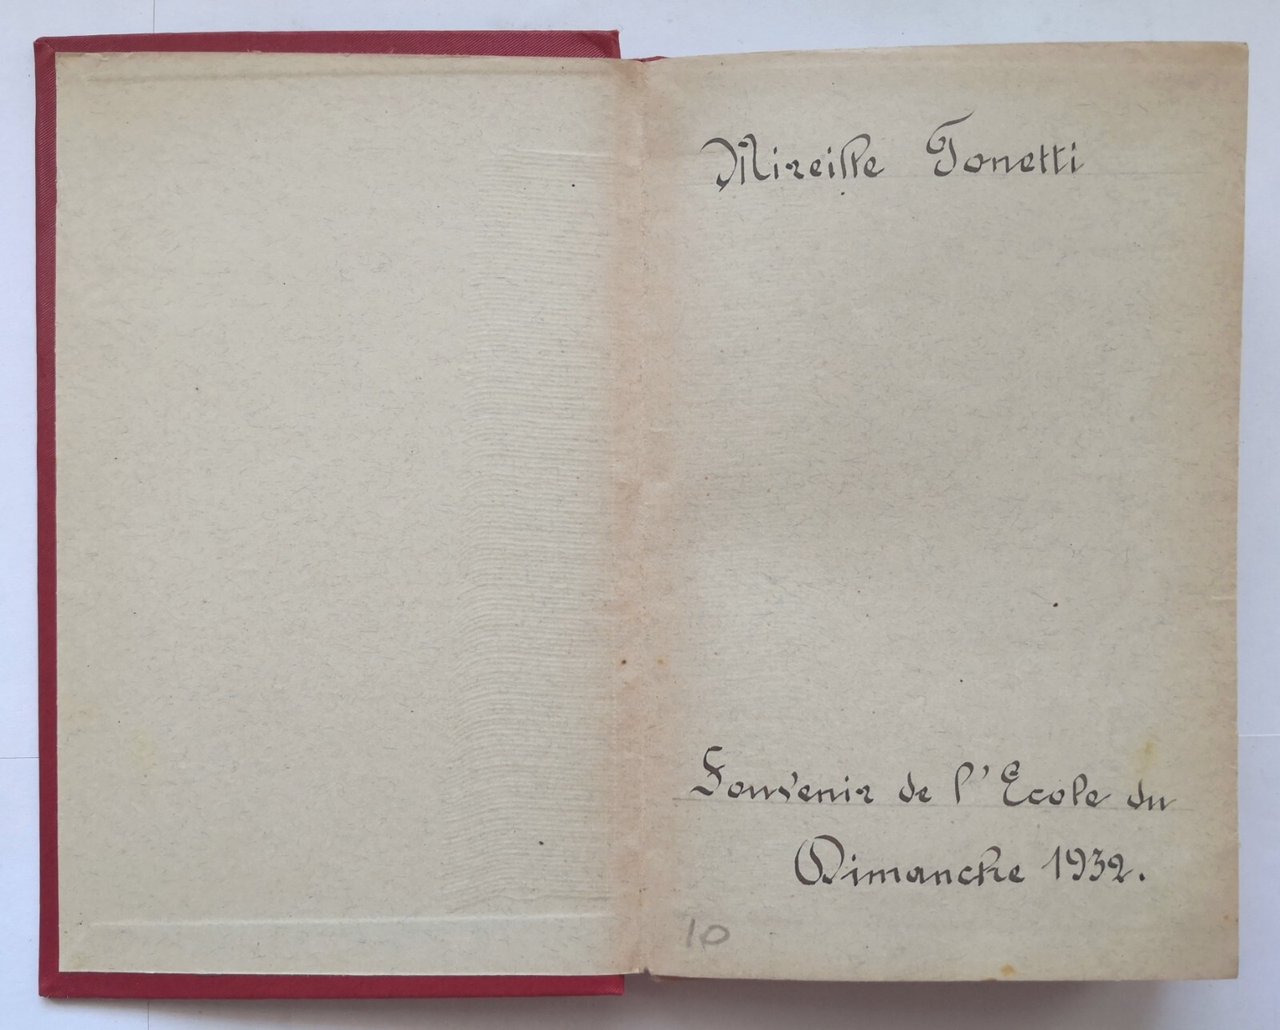 Mireille Tonetti
Souvenir de l'Ecole du
Dimanche 1932.
10